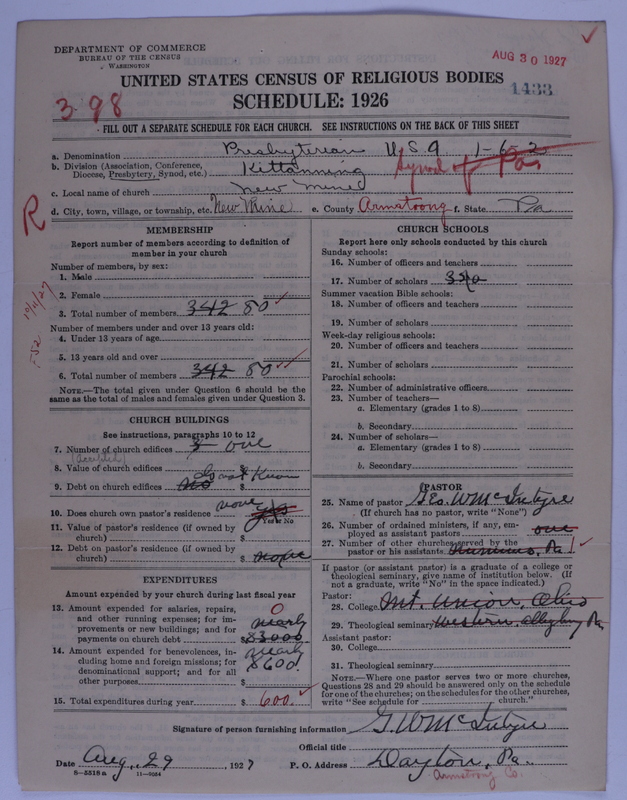 DEPARTMENT OF COMMERCE
BUREAU OF THE CENSUS
WASHINGTON
AUG 30 1927
UNITED STATES CENSUS OF RELIGIOUS BODIES
1433
3-98
SCHEDULE: 1926
FILL OUT A SEPARATE SCHEDULE FOR EACH CHURCH. SEE INSTRUCTIONS ON THE BACK OF THIS SHEET
a. Denomination Presbyterian U.S.A. 1-6-2
b. Division (Association, Conference, Diocese, Presbytery, Synod, etc.) Kittanning Synod of Pa
c. Local name of church New Mine
d. City, town, village, or township, etc. New Mine e. County Armstrong f. State Pa
R
10/11/27
MEMBERSHIP
Report number of members according to definition of
member in your church
Number of members, by sex:
1. Male
2. Female
3. Total number of members 342 80
Number of members under and over 13 years old:
4. Under 13 years of age
5. 13 years old and over
6. Total number of members 342 80
NOTE.—The total given under Question 6 should be
same as the total of males and females given under Question 3.
CHURCH BUILDINGS
See instructions, paragraphs 10 to 12
7. Number of church edifices 3 one
8. Value of church edifices $
9. Debt on church edifices $ no
10. Does church own pastor's residence none yes
Yes or No
11. Value of pastor's residence (if owned by
church) $
12. Debt on pastor's residence (if owned by
church) $ none
EXPENDITURES
Amount expended by your church during last fiscal year
13. Amount expended for salaries, repairs,
and other running expenses; for im-
provements or new buildings; and for
payments on church debt 0 nearly $3000
14. Amount expended for benevolences, in-
cluding home and foreign missions; for
denominational support; and for all
other purposes $ nearly 600
15. Total expenditures during year $ 600.
CHURCH SCHOOLS
Report here only schools conducted by this church
Sunday schools:
16. Number of officers and teachers
17. Number of scholars
Summer vacation Bible schools:
18. Number of officers and teachers
19. Number of scholars
Week-day religious schools:
20. Number of officers and teachers
21. Number of scholars
Parochial schools:
22. Number of administrative officers
23. Number of teachers—
a. Elementary (grades 1 to 8)
b. Secondary
24. Number of scholars—
a. Elementary (grades 1 to 8)
b. Secondary
PASTOR
25. Name of pastor Geo. W McIntyre
(If church has no pastor, write "None")
26. Number of ordained ministers, if any, em-
ployed as assistant pastors one
27. Number of other churches served by the
pastor or his assistants Pa 1
If pastor (or assistant pastor) is a graduate of a college or
theological seminary, give name of institution below. (If
not a graduate, write "No" in the space indicated.)
Pastor:
28. College Mt. Union, Ohio
29. Theological seminary Western, Allegheny Pa.
Assistant pastor:
30. College
31. Theological seminary
NOTE.—Where one pastor serves two or more churches,
Questions 28 and 29 should be answered only on the schedule
for one of the churches; on the schedules for the other churches,
write "See schedule for church."
Signature of person furnishing information G. W McIntyre
Official title
Date Aug, 29, 1927 P. O. Address Dayton, Pa.
8-5518 a 11-9034
Armstrong Co.